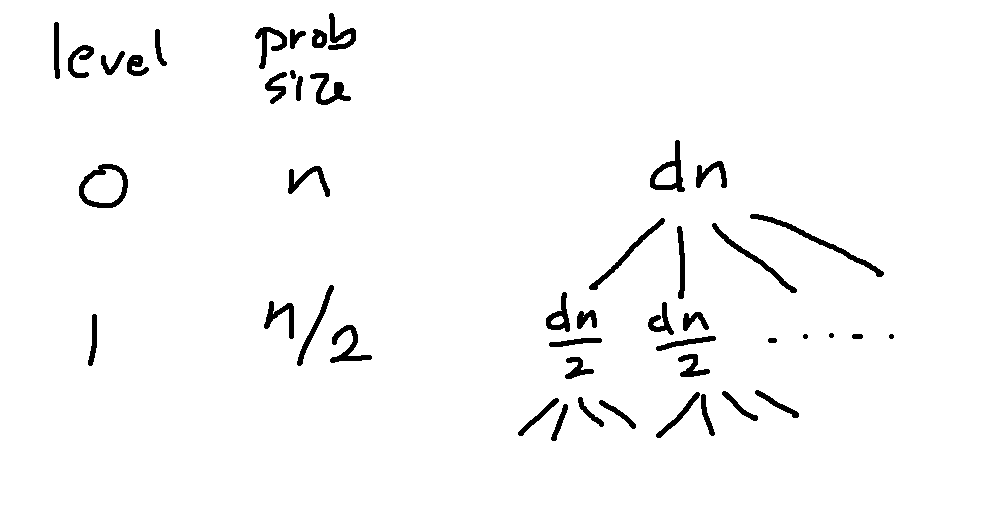 level prob size
0 n dn
1 n/2 dn/2 dn/2 .....